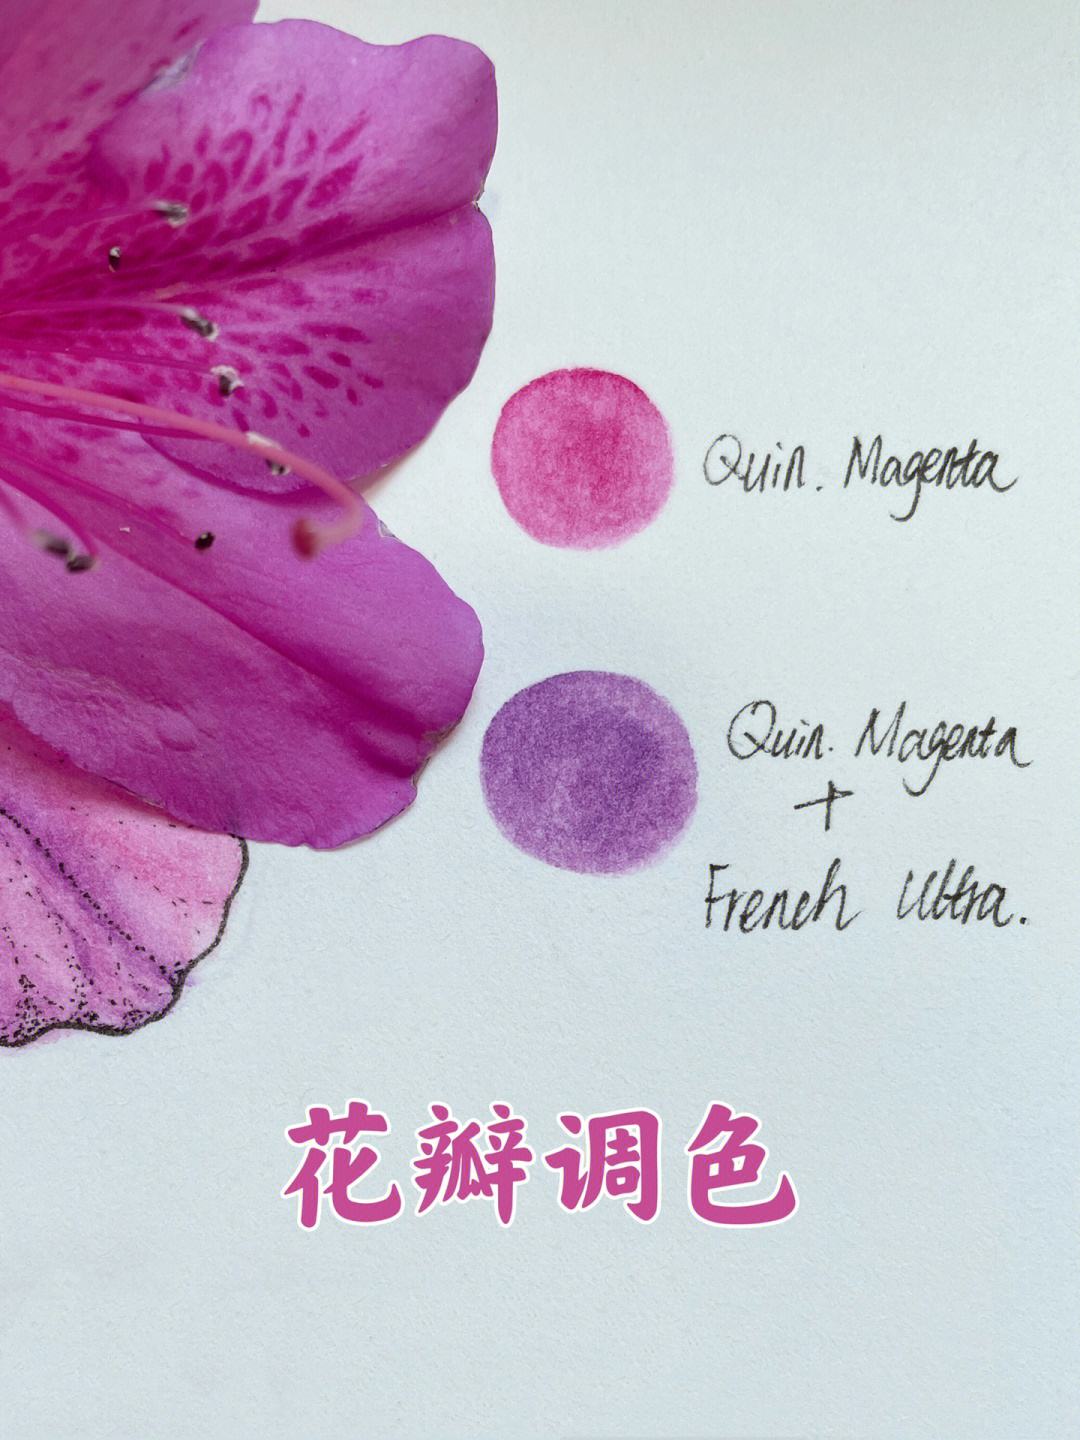 Quin. Magenta
Quin. Magenta
+
French Ultra.
花瓣调色